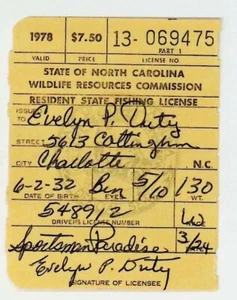 1978 $7.50 13-069475
VALID PRICE PART 1
LICENSE NO.
STATE OF NORTH CAROLINA
WILDLIFE RESOURCES COMMISSION
RESIDENT STATE FISHING LICENSE
ISSUED TO Evelyn P. Duty
STREET 5613 Cottingham
CITY Charlotte N.C.
6-2-32 Brn 5/10 130
DATE OF BIRTH EYES HT. WT.
548912
DRIVERS LICENSE NUMBER
Sportsman Paradise 3/24
Evelyn P. Duty
SIGNATURE OF LICENSEE